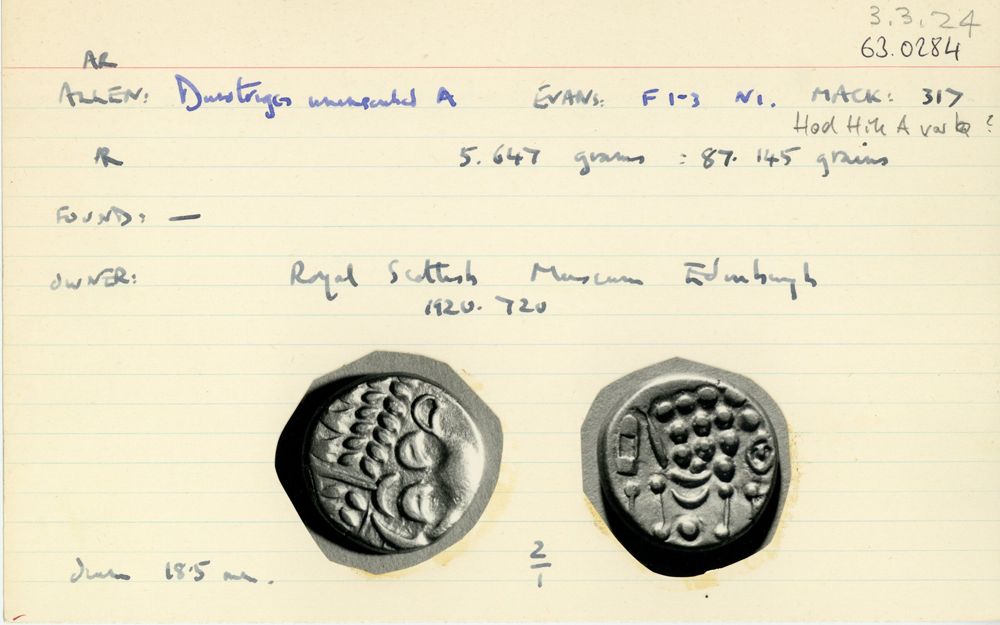 3.3.24
63.0284
AR
ALLEN: Durotriges uninscribed A EVANS: F 1-3 N1. MACK: 317
Hod Hill A var ?
AR 5.647 grams : 87.145 grains
FOUND: —
OWNER: Royal Scottish Museum Edinburgh
1920.720
diam 18.5 mm.
2/1